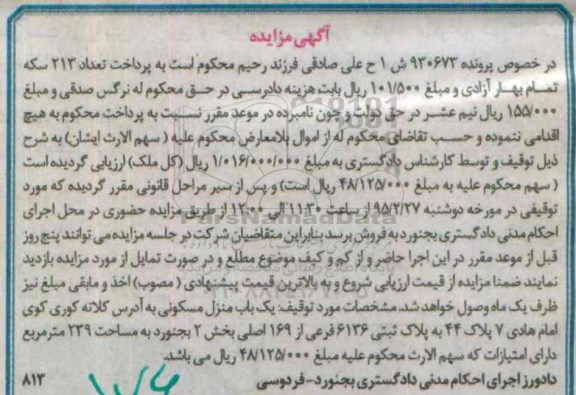 آگهی مزایده
در خصوص پرونده ۹۳۰۶۷۳ ش ۱ ح علی صادقی فرزند رحیم محکوم است به پرداخت تعداد ۲۱۳ سکه
تمام بهار آزادی و مبلغ ۱۰۱/۵۰۰ ریال بابت هزینه دادرسی در حق محکوم له نرگس صدقی و مبلغ
۱۵۵/۰۰۰ ریال نیم عشر در حق دولت و چون نامبرده در موعد مقرر نسبت به پرداخت محکوم به هیچ
اقدامی ننموده و حسب تقاضای محکوم له از اموال بلامعارض محکوم علیه ( سهم الارث ایشان) به شرح
ذیل توقیف و توسط کارشناس دادگستری به مبلغ ۱/۰۱۶/۰۰۰/۰۰۰ ریال (کل ملک) ارزیابی گردیده است
( سهم محکوم علیه به مبلغ ۴۸/۱۲۵/۰۰۰ ریال است) و پس از سیر مراحل قانونی مقرر گردیده که مورد
توقیفی در مورخه دوشنبه ۹۵/۲/۲۷ از ساعت ۱۱:۳۰ الی ۱۲:۰۰ از طریق مزایده حضوری در محل اجرای
احکام مدنی دادگستری بجنورد به فروش برسد بنابراین متقاضیان شرکت در جلسه مزایده می توانند پنج روز
قبل از موعد مقرر در این اجرا حاضر و از کم و کیف موضوع مطلع و در صورت تمایل از مورد مزایده بازدید
نمایند ضمنا مزایده از قیمت ارزیابی شروع و به بالاترین قیمت پیشنهادی ( مصوب) اخذ و مابقی مبلغ نیز
ظرف یک ماه وصول خواهد شد. مشخصات مورد توقیف: یک باب منزل مسکونی به آدرس کلاته کوری کوی
امام هادی ۷ پلاک ۴۴ به پلاک ثبتی ۶۱۳۶ فرعی از ۱۶۹ اصلی بخش ۲ بجنورد به مساحت ۲۳۹ مترمربع
دارای امتیازات که سهم الارث محکوم علیه مبلغ ۴۸/۱۲۵/۰۰۰ ریال می باشد.
دادورز اجرای احکام مدنی دادگستری بجنورد-فردوسی ۸۱۳
ParsNamadData